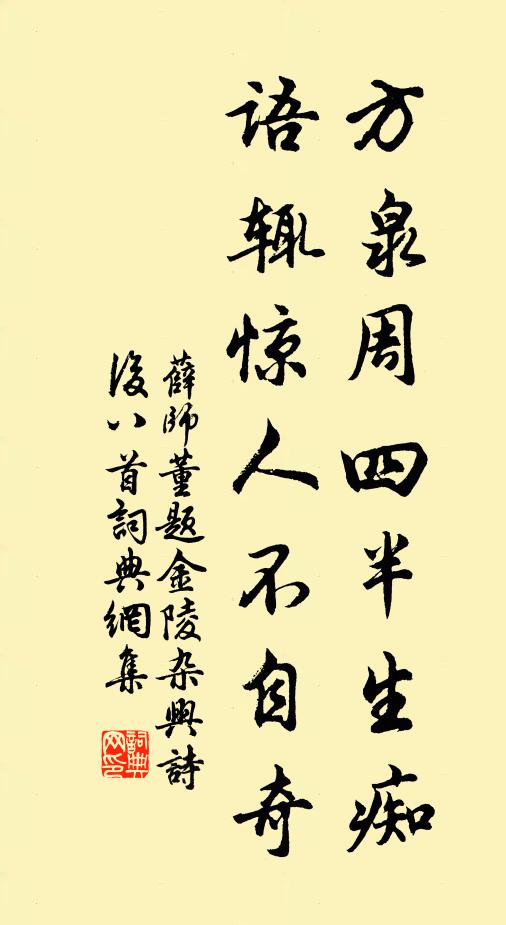 方泉周四半生痴
语辄惊人不自奇
薛师董题金陵杂興詩
後八首詞典網集
詞典網印